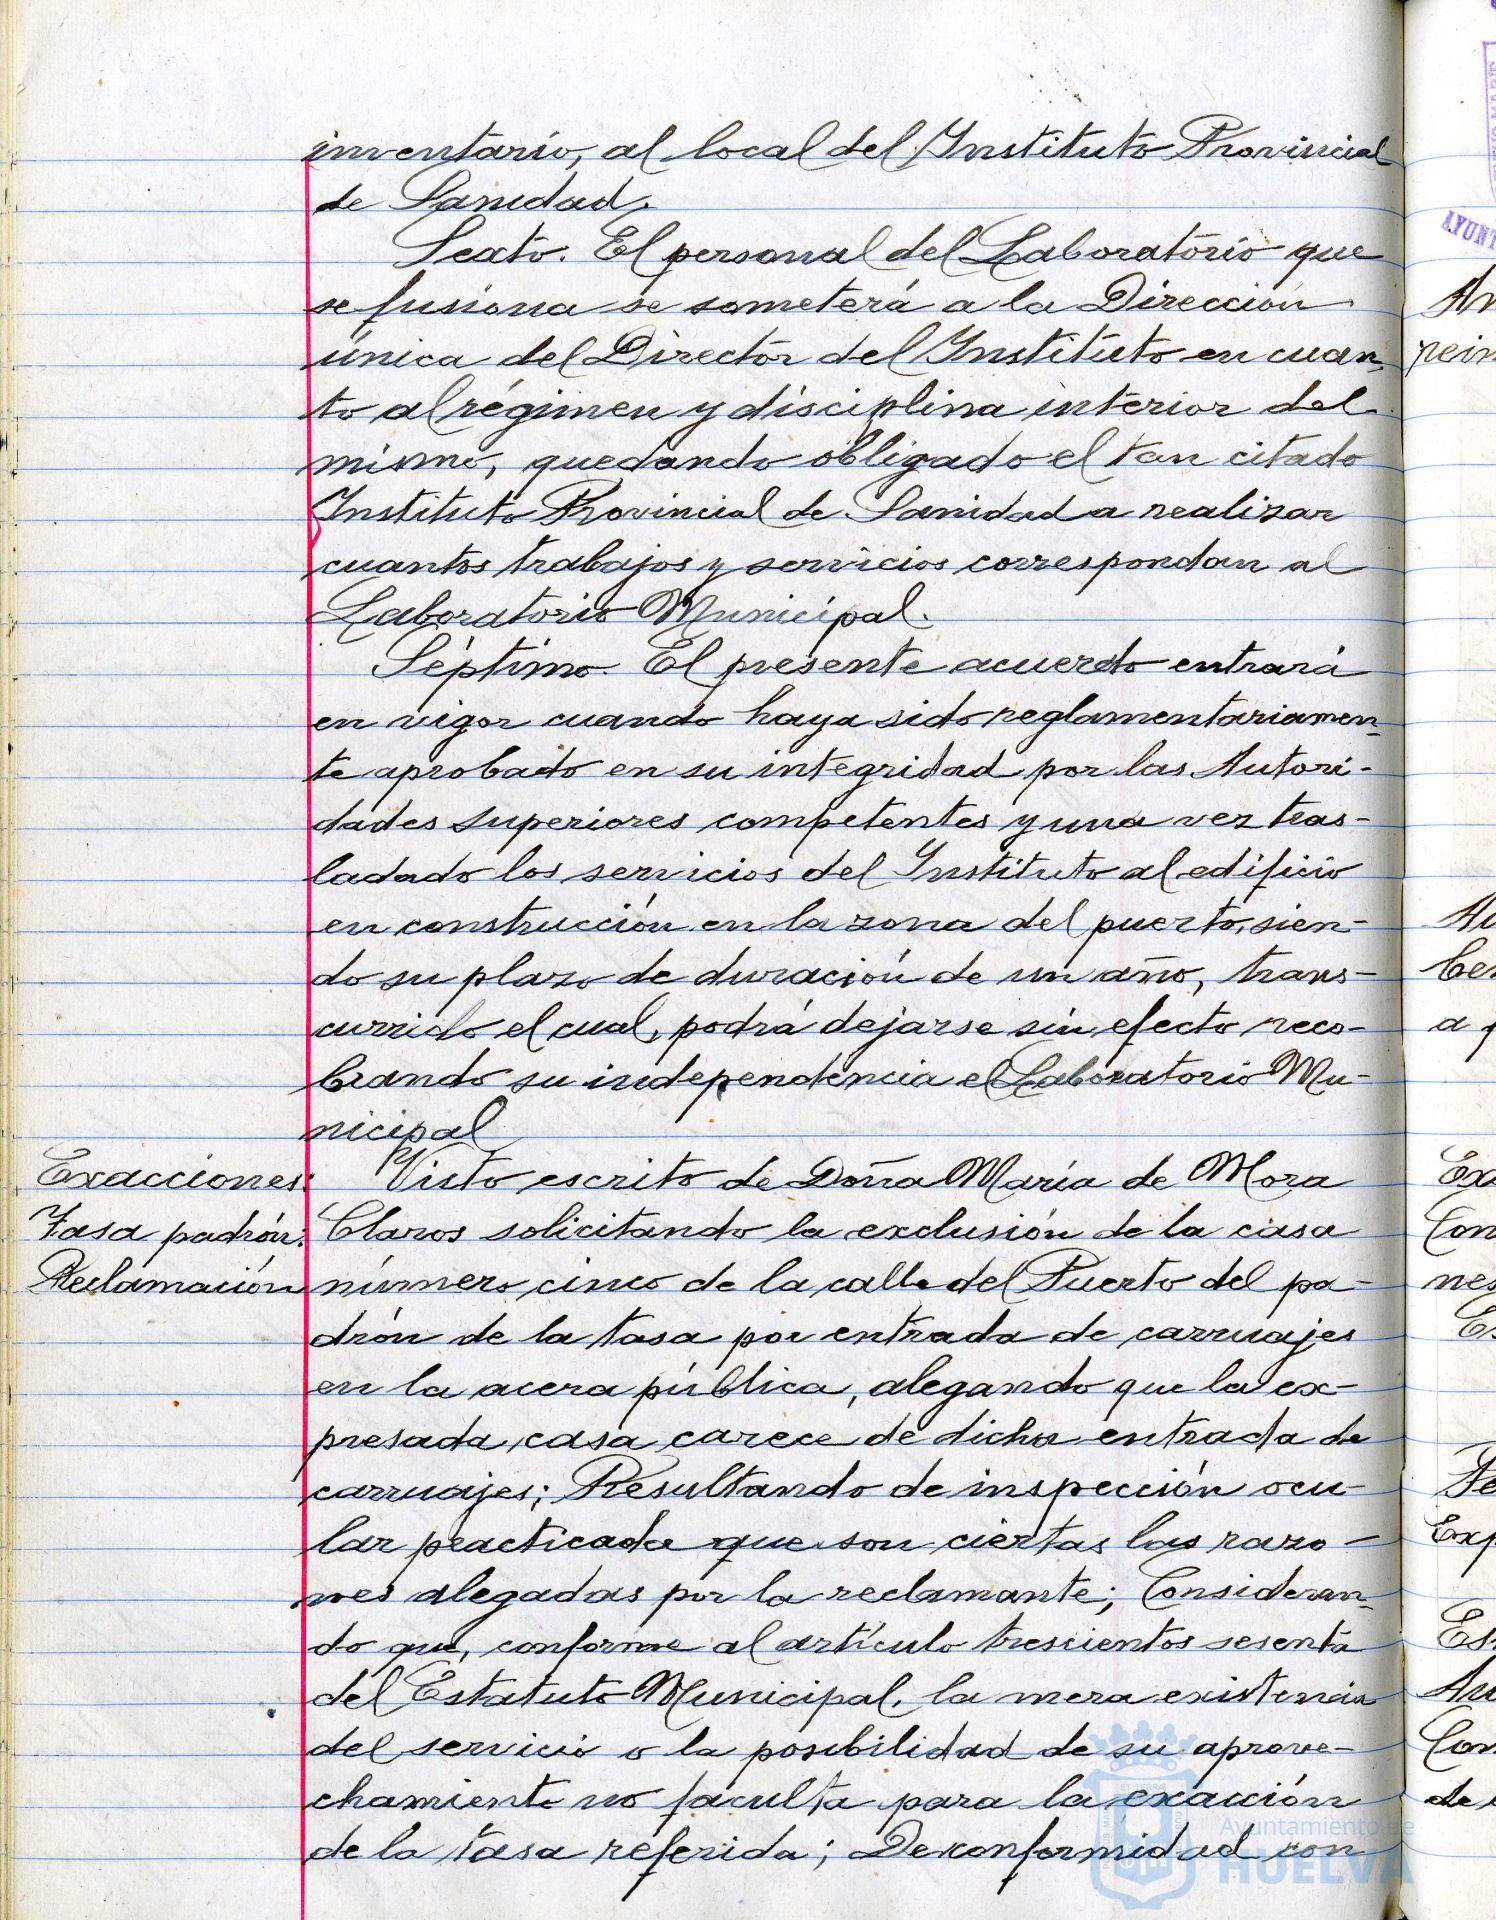 inventario, al local del Instituto Provincial
de Sanidad.
Sexto. El personal del Laboratorio que
se fusiona se someterá a la Dirección
única del Director del Instituto en cuan-
to al régimen y disciplina interior del
mismo, quedando obligado el tan citado
Instituto Provincial de Sanidad a realizar
cuantos trabajos y servicios correspondan al
Laboratorio Municipal.
Séptimo. El presente acuerdo entrará
en vigor cuando haya sido reglamentariamen-
te aprobado en su integridad por las Autori-
dades superiores competentes y una vez tras-
ladado los servicios del Instituto al edificio
en construcción en la zona del puerto, sien-
do su plazo de duración de un año, trans-
currido el cual, podrá dejarse sin efecto, reco-
brando su independencia el Laboratorio Mu-
nicipal
Exacciones:
Tasa padrón:
Reclamación
Visto escrito de Doña María de Mora
Claros solicitando la exclusión de la casa
número cinco de la calle del Puerto del pa-
drón de la tasa por entrada de carruajes
en la acera pública, alegando que la ex-
presada casa carece de dicha entrada de
carruajes; Resultando de inspección ocu-
lar practicada que son ciertas las razo-
nes alegadas por la reclamante; Consideran-
do que, conforme al artículo trescientos sesenta
del Estatuto Municipal, la mera existencia
del servicio o la posibilidad de su aprove-
chamiento no faculta para la exacción
de la tasa referida; De conformidad con
Ayuntamiento de
HUELVA